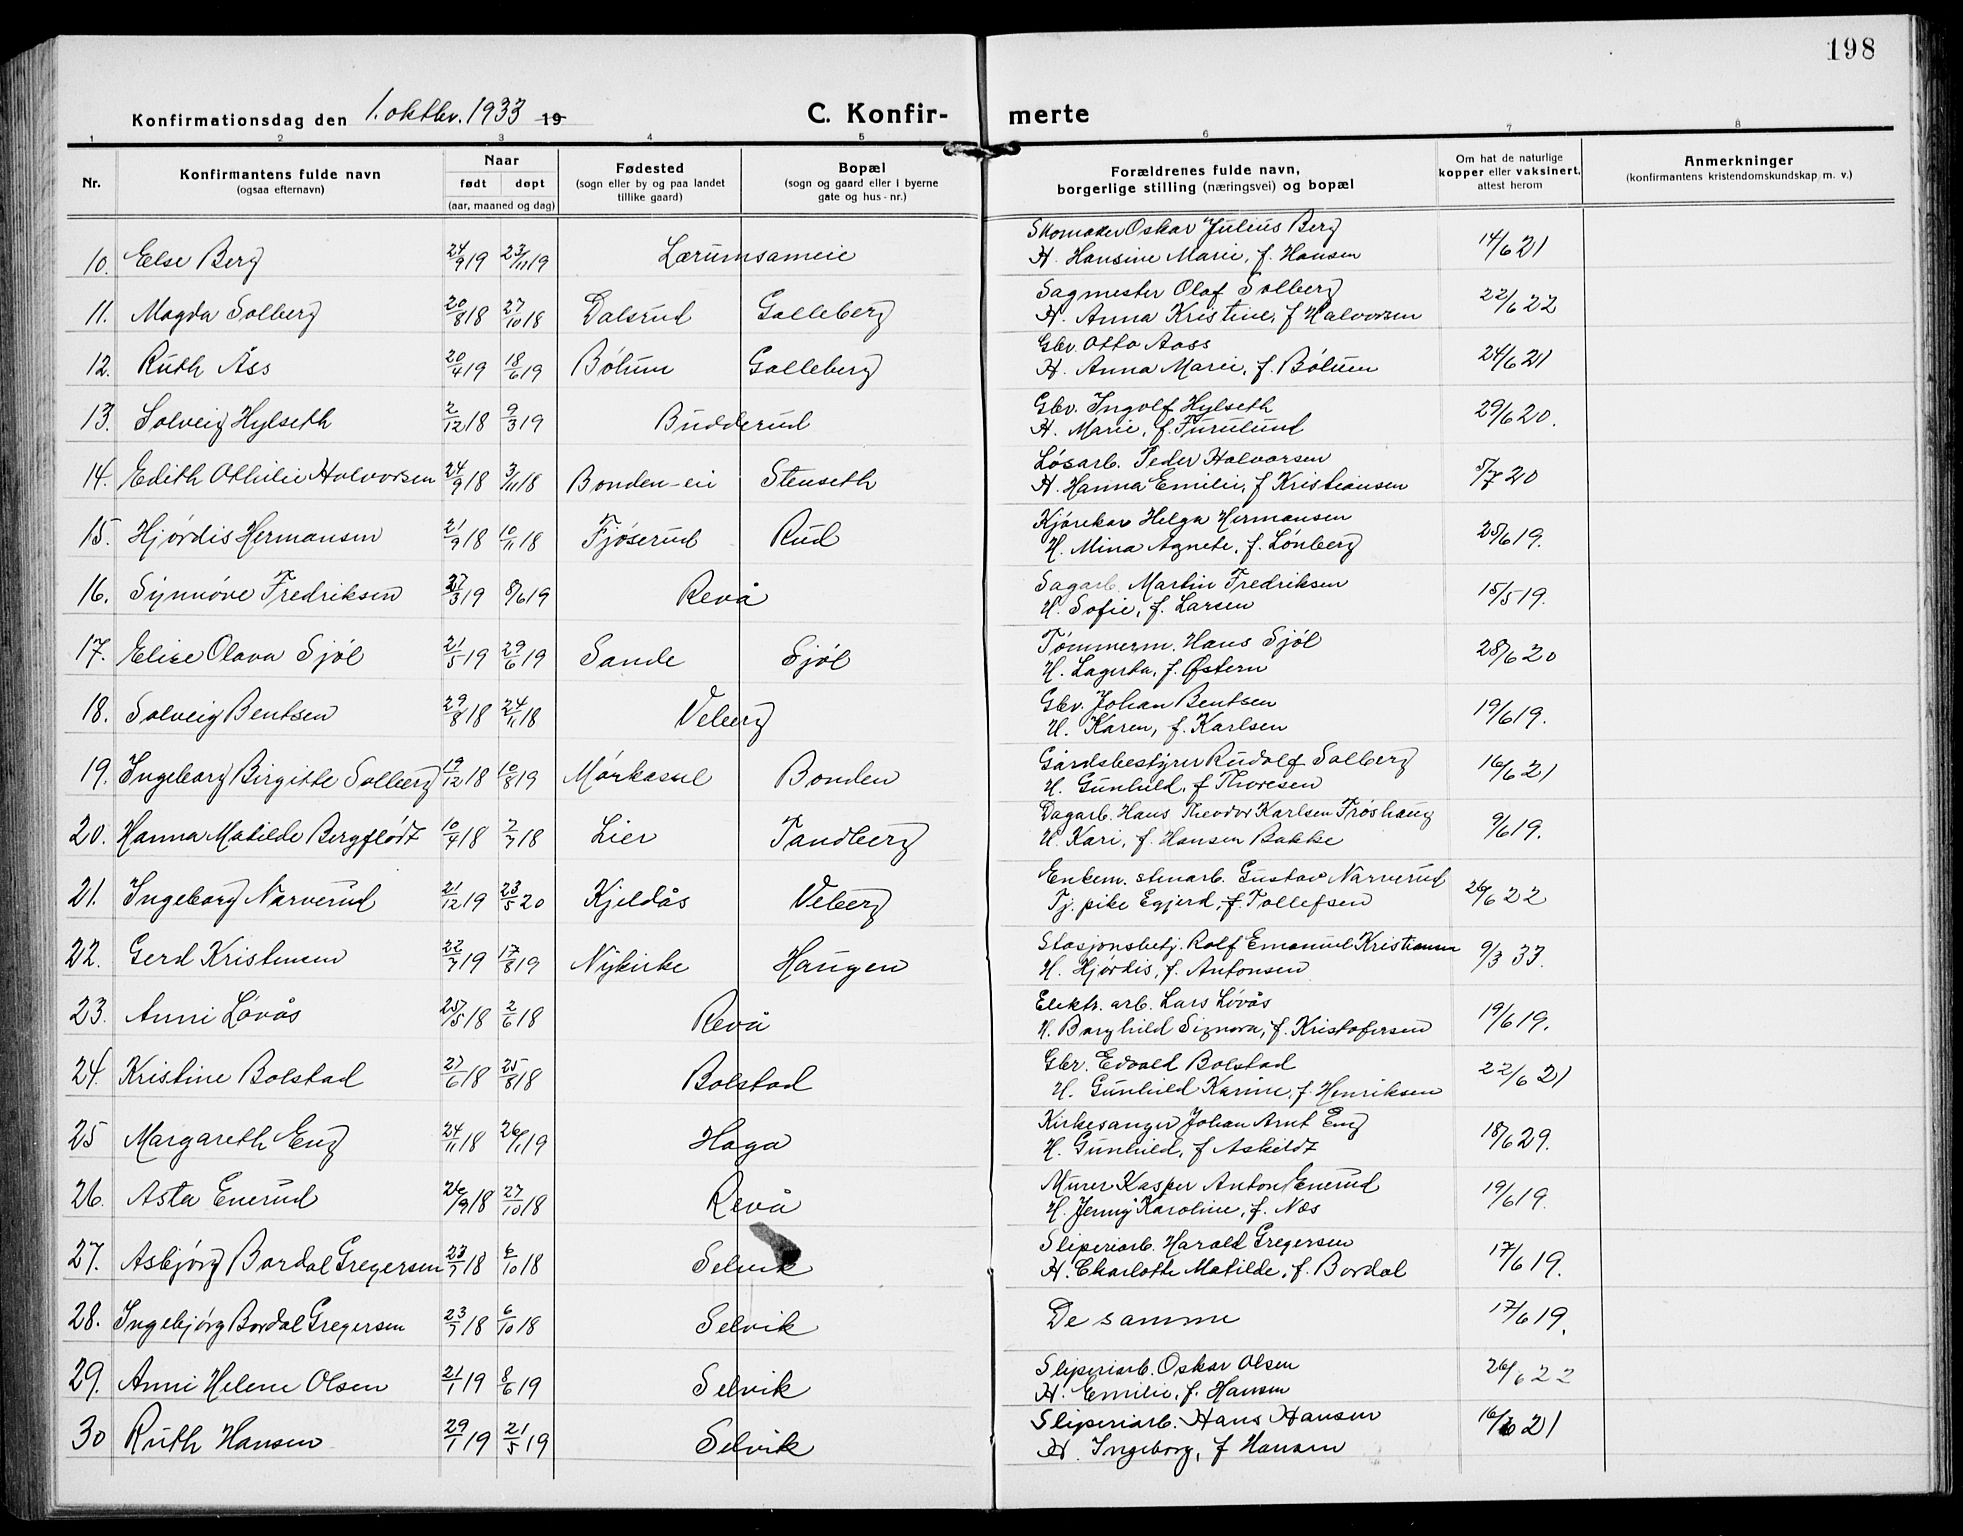 198
Konfirmationsdag den 1. oktbr. 1933 19
C. Konfir-
merte
1 2 3 4 5 6 7 8
Nr.
Konfirmantens fulde navn
(ogsaa efternavn)
Naar
født døpt
(aar, maaned og dag)
Fødested
(sogn eller by og paa landet
tillike gaard)
Bopæl
(sogn og gaard eller i byerne
gate og hus-nr.)
Forældrenes fulde navn,
borgerlige stilling (næringsvei) og bopæl
Om hat de naturlige
kopper eller vaksinert,
attest herom
Anmerkninger
(konfirmantens kristendomskundskap m. v.)
Skomaker Oskar Julius Berg
10. Else Berg 24/9 19 23/11 19 Lærumsameie H. Hansine Marie, f. Hansen 14/6 21
Sagmester Olaf Solberg
11. Magda Solberg 20/8 18 27/10 18 Dalsrud Galleberg H. Anna Kristine, f Halvorsen 22/6 22
Gbr. Otto Aass
12. Ruth Ass 20/4 19 18/6 19 Bølum Galleberg H. Anna Marie, f. Bølum 24/6 21
Gbr. Ingolf Hylseth
13. Solveig Hylseth 2/12 18 9/3 19 Budderud H. Marie, f. Furulund 29/6 20.
Løsarb. Peder Halvorsen
14. Edith Othilie Halvorsen 24/9 18 3/11 18 Bonden-eie Stenseth H. Hanna Emilie, f Kristiansen 5/7 20
Kjørekar Helga Hermansen
15. Hjørdis Hermansen 21/9 18 10/11 18 Fjøserud Rud H. Mina Agnete, f. Lønberg 25/6 19.
Sagarb. Martin Fredriksen
16. Synnøve Fredriksen 27/3 19 8/6 19 Revå H. Sofie, f. Larsen 15/5 19.
Tømmerm. Hans Sjøl
17. Elise Olava Sjøl 21/5 19 29/6 19 Sande Sjøl H. Lagerta, f. Østern 28/6 20
Gbr. Johan Bentsen
18. Solveig Bentsen 29/8 18 24/11 18 Veberg H. Karen, f. Karlsen 19/6 19.
Gårdsbestyrer Rudolf Solberg
19. Ingeborg Birgitte Solberg 19/12 18 10/8 19 Mørkasul Bonden H. Gunhild, f Thoresen 16/6 21
Dagarb. Hans Theodor Karlsen Frøshaug
20. Hanna Matilde Bergflødt 10/4 18 7/7 18 Lier Tandberg H. Kari, f. Hansen Bakke 9/6 19.
Enkem. stenarb. Gustav Narverud
21. Ingeborg Narverud 21/12 19 23/5 20 Kjeldås Veberg Tj. pike Egjerd, f. Tollefsen 26/6 22
Stasjonsbetj. Rolf Emanuel Kristensen
22. Gerd Kristensen 22/7 19 17/8 19 Nykirke Haugen H. Hjørdis, f. Antonsen 9/3 33.
Elektr. arb. Lars Løvås
23. Anni Løvås 25/5 18 2/6 18 Revå H. Borghild Signora, f. Kristofersen 19/6 19.
Gbr. Edvald Bolstad
24. Kristine Bolstad 27/6 18 25/8 18 Bolstad H. Gunhild Karine, f. Henriksen 22/6 21
Kirkesanger Johan Arnt Eng
25 Margareth Eng 24/11 18 26/1 19 Haga H. Gunhild, f Askildt 18/6 29.
Murer Kasper Anton Enerud
26. Asta Enerud 26/9 18 27/10 18 Revå H. Jenny Karoline, f. Næs 19/6 19.
Sliperiarb. Harald Gregersen
27. Asbjørg Bordal Gregersen 23/7 18 6/10 18 Selvik H. Charlotte Matilde, f. Bordal 17/6 19.
28. Ingebjørg Bordal Gregersen 23/7 18 6/10 18 Selvik De samme 17/6 19.
Sliperiarb. Oskar Olsen
29. Anni Helene Olsen 21/1 19 8/6 19 Selvik H. Emilie, f. Hansen 26/6 22
Sliperiarb. Hans Hansen
30 Ruth Hansen 29/1 19 21/5 19 Selvik H. Ingeborg, f Hansen 16/6 21